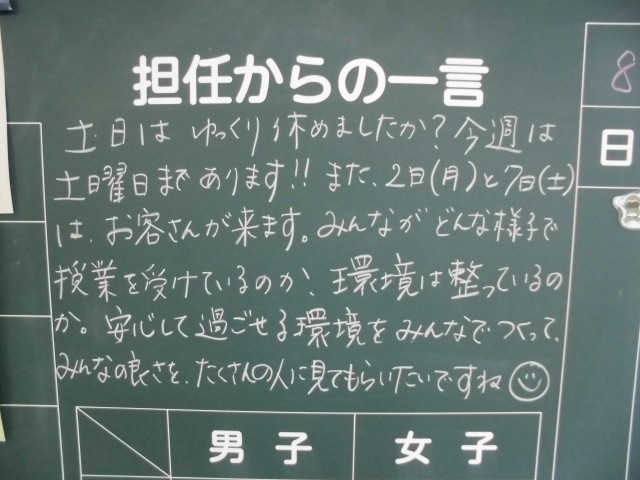 担任からの一言
土日は ゆっくり休めましたか?今週は
土曜日まであります!!また、2日(月)と7日(土)
は、お客さんが来ます。みんなが どんな様子で
授業を受けているのか、環境は整っているの
か。安心して過ごせる環境をみんなでつくって、
みんなの良さを、たくさんの人に見てもらいたいですね
8
日
男子
女子